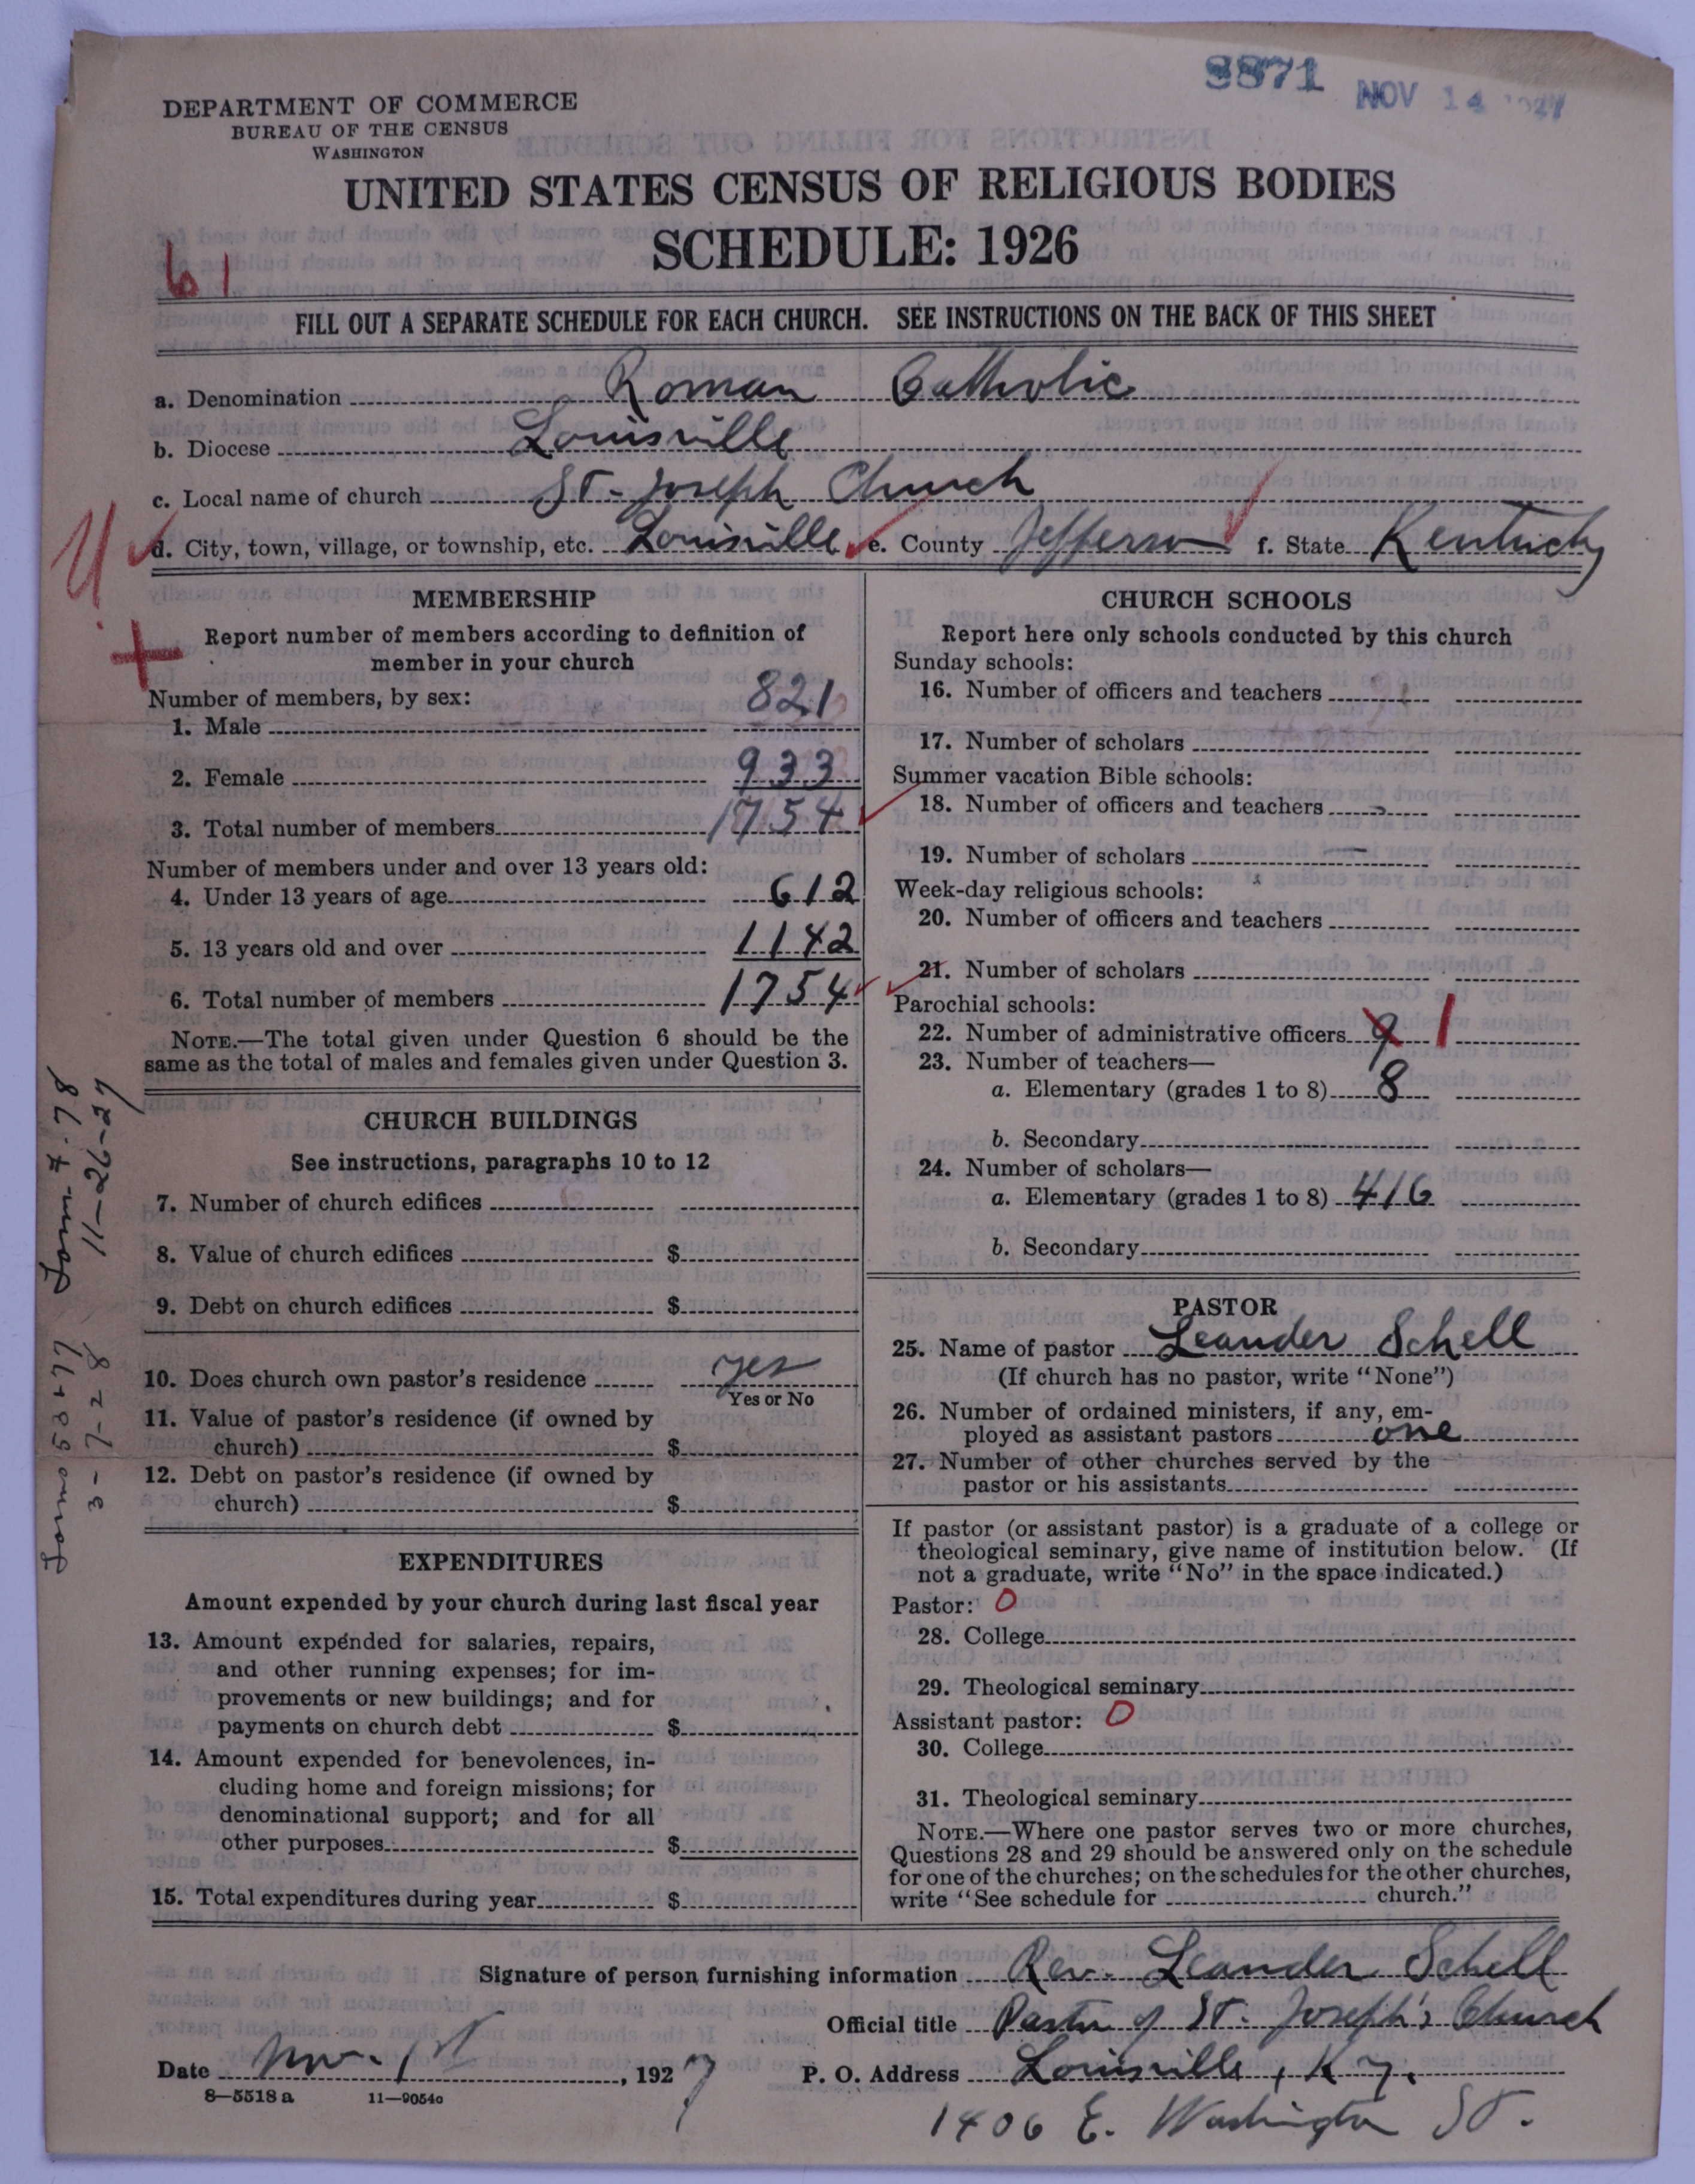 3871 NOV 14 1927
DEPARTMENT OF COMMERCE
BUREAU OF THE CENSUS
WASHINGTON
UNITED STATES CENSUS OF RELIGIOUS BODIES
SCHEDULE: 1926
61
FILL OUT A SEPARATE SCHEDULE FOR EACH CHURCH. SEE INSTRUCTIONS ON THE BACK OF THIS SHEET
a. Denomination Roman Catholic
b. Diocese Louisville
c. Local name of church St. Joseph Church
d. City, town, village, or township, etc. Louisville e. County Jefferson f. State Kentucky
MEMBERSHIP
Report number of members according to definition of
member in your church
Number of members, by sex:
1. Male 821
2. Female 933
3. Total number of members 1754
Number of members under and over 13 years old:
4. Under 13 years of age 612
5. 13 years old and over 1142
6. Total number of members 1754
NOTE.—The total given under Question 6 should be the
same as the total of males and females given under Question 3.
CHURCH BUILDINGS
See instructions, paragraphs 10 to 12
7. Number of church edifices
8. Value of church edifices $
9. Debt on church edifices $
10. Does church own pastor's residence yes
Yes or No
11. Value of pastor's residence (if owned by
church) $
12. Debt on pastor's residence (if owned by
church) $
EXPENDITURES
Amount expended by your church during last fiscal year
13. Amount expended for salaries, repairs,
and other running expenses; for im-
provements or new buildings; and for
payments on church debt $
14. Amount expended for benevolences, in-
cluding home and foreign missions; for
denominational support; and for all
other purposes $
15. Total expenditures during year $
CHURCH SCHOOLS
Report here only schools conducted by this church
Sunday schools:
16. Number of officers and teachers
17. Number of scholars
Summer vacation Bible schools:
18. Number of officers and teachers
19. Number of scholars —
Week-day religious schools:
20. Number of officers and teachers
21. Number of scholars
Parochial schools:
22. Number of administrative officers 9 1
23. Number of teachers—
a. Elementary (grades 1 to 8) 8
b. Secondary
24. Number of scholars—
a. Elementary (grades 1 to 8) 416
b. Secondary
PASTOR
25. Name of pastor Leander Schell
(If church has no pastor, write "None")
26. Number of ordained ministers, if any, em-
ployed as assistant pastors one
27. Number of other churches served by the
pastor or his assistants
If pastor (or assistant pastor) is a graduate of a college or
theological seminary, give name of institution below. (If
not a graduate, write "No" in the space indicated.)
Pastor: 0
28. College
29. Theological seminary
Assistant pastor: 0
30. College
31. Theological seminary
NOTE.—Where one pastor serves two or more churches,
Questions 28 and 29 should be answered only on the schedule
for one of the churches; on the schedules for the other churches,
write "See schedule for church."
Signature of person furnishing information Rev. Leander Schell
Official title Pastor of St. Joseph's Church
Date Nov. 1st, 1927 P. O. Address Louisville, Ky.
8—5518a 11—9054c
1406 E. Washington St.
11-26-27
3-7-28